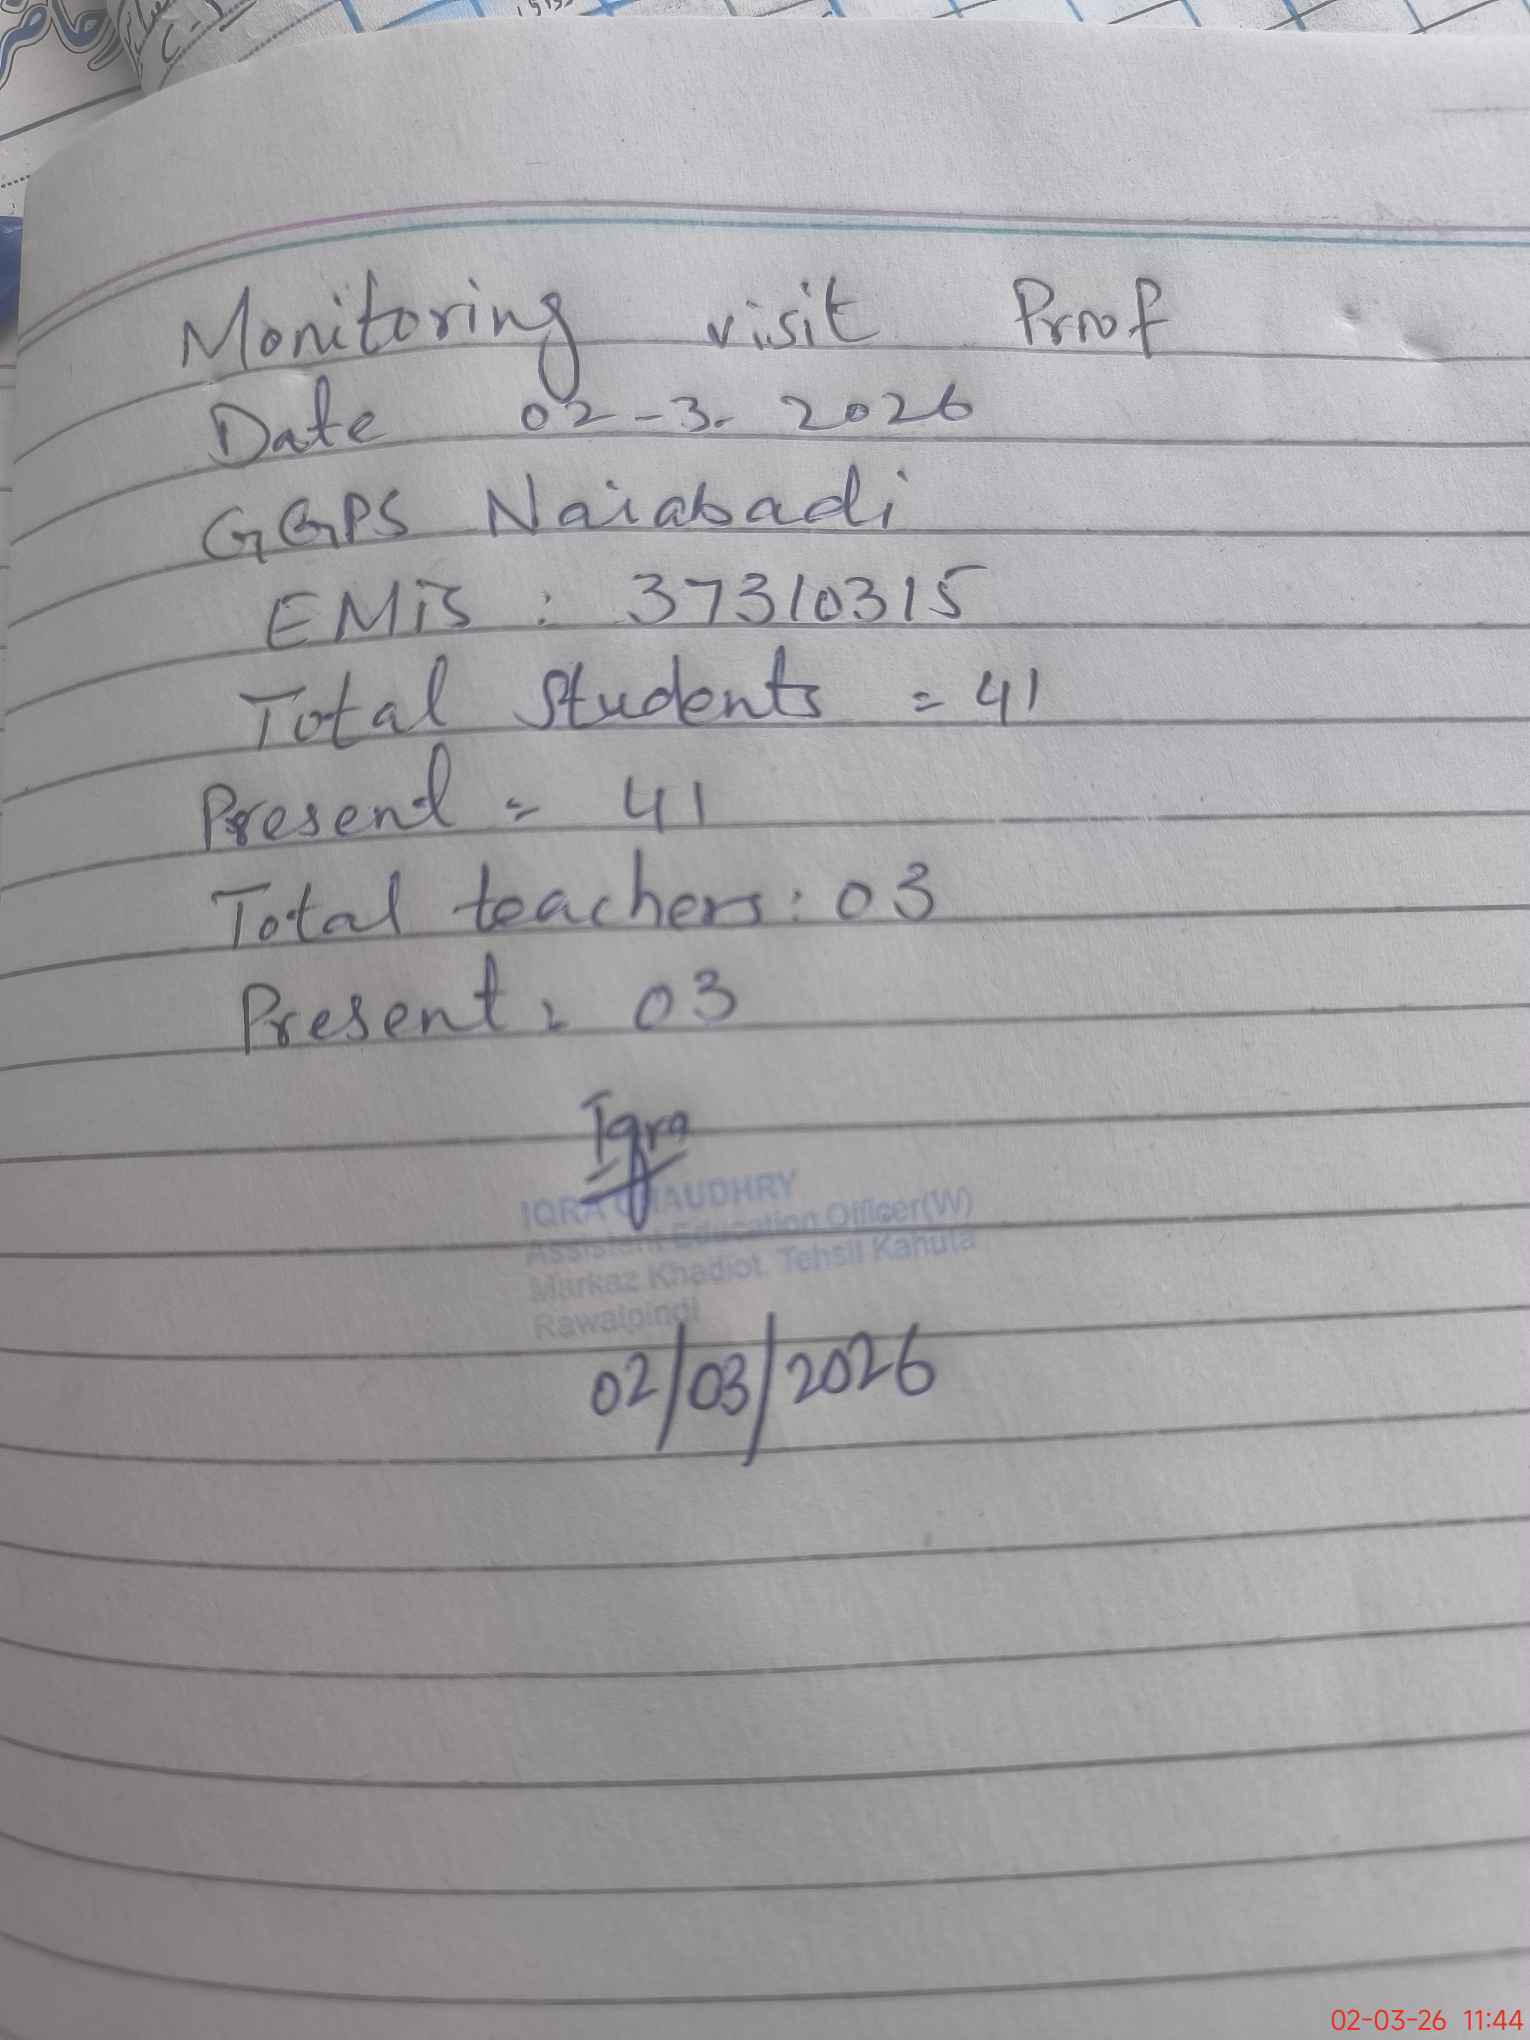 Monitoring visit Proof
Date 02-3-2026
GGPS Naiabadi
EMIS : 37310315
Total Students = 41
Present = 41
Total teachers: 03
Present = 03
Iqra
IQRA CHAUDHRY
Assistant Education Officer(W)
Markaz Khadiot, Tehsil Kahuta
Rawalpindi
02/03/2026
02-03-26 11:44